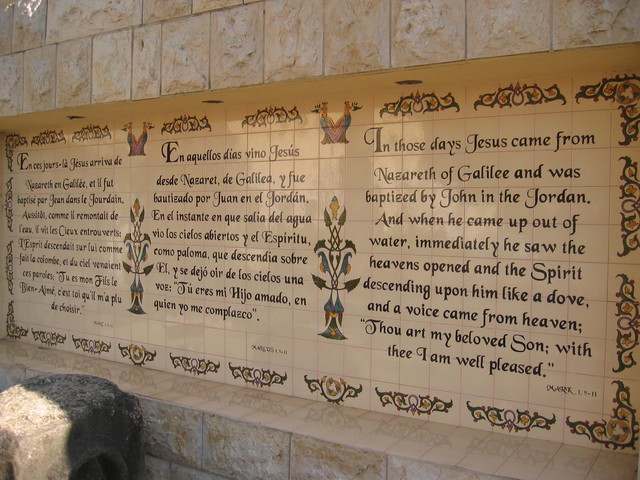 En ces jours-là Jésus arriva de
Nazareth en Galilée, et il fut
baptisé par Jean dans le Jourdain.
Aussitôt, comme il remontait de
l'eau, il vit les Cieux entrouverts;
l'Esprit descendait sur lui comme
fait la colombe, et du ciel venaient
ces paroles: "Tu es mon Fils le
Bien-Aimé, c'est toi qu'il m'a plu
de choisir."
En aquellos dias vino Jesús
desde Nazaret, de Galilea, y fue
bautizado por Juan en el Jordán.
En el instante en que salia del agua
vio los cielos abiertos y el Espiritu,
como paloma, que descendia sobre
El, y se dejó oir de los cielos una
voz: "Tú eres mi Hijo amado, en
quien yo me complazco".
MARCOS 1, 9-11
In those days Jesus came from
Nazareth of Galilee and was
baptized by John in the Jordan.
And when he came up out of
water, immediately he saw the
heavens opened and the Spirit
descending upon him like a dove,
and a voice came from heaven;
"Thou art my beloved Son; with
thee I am well pleased."
MARK, 1, 9-11